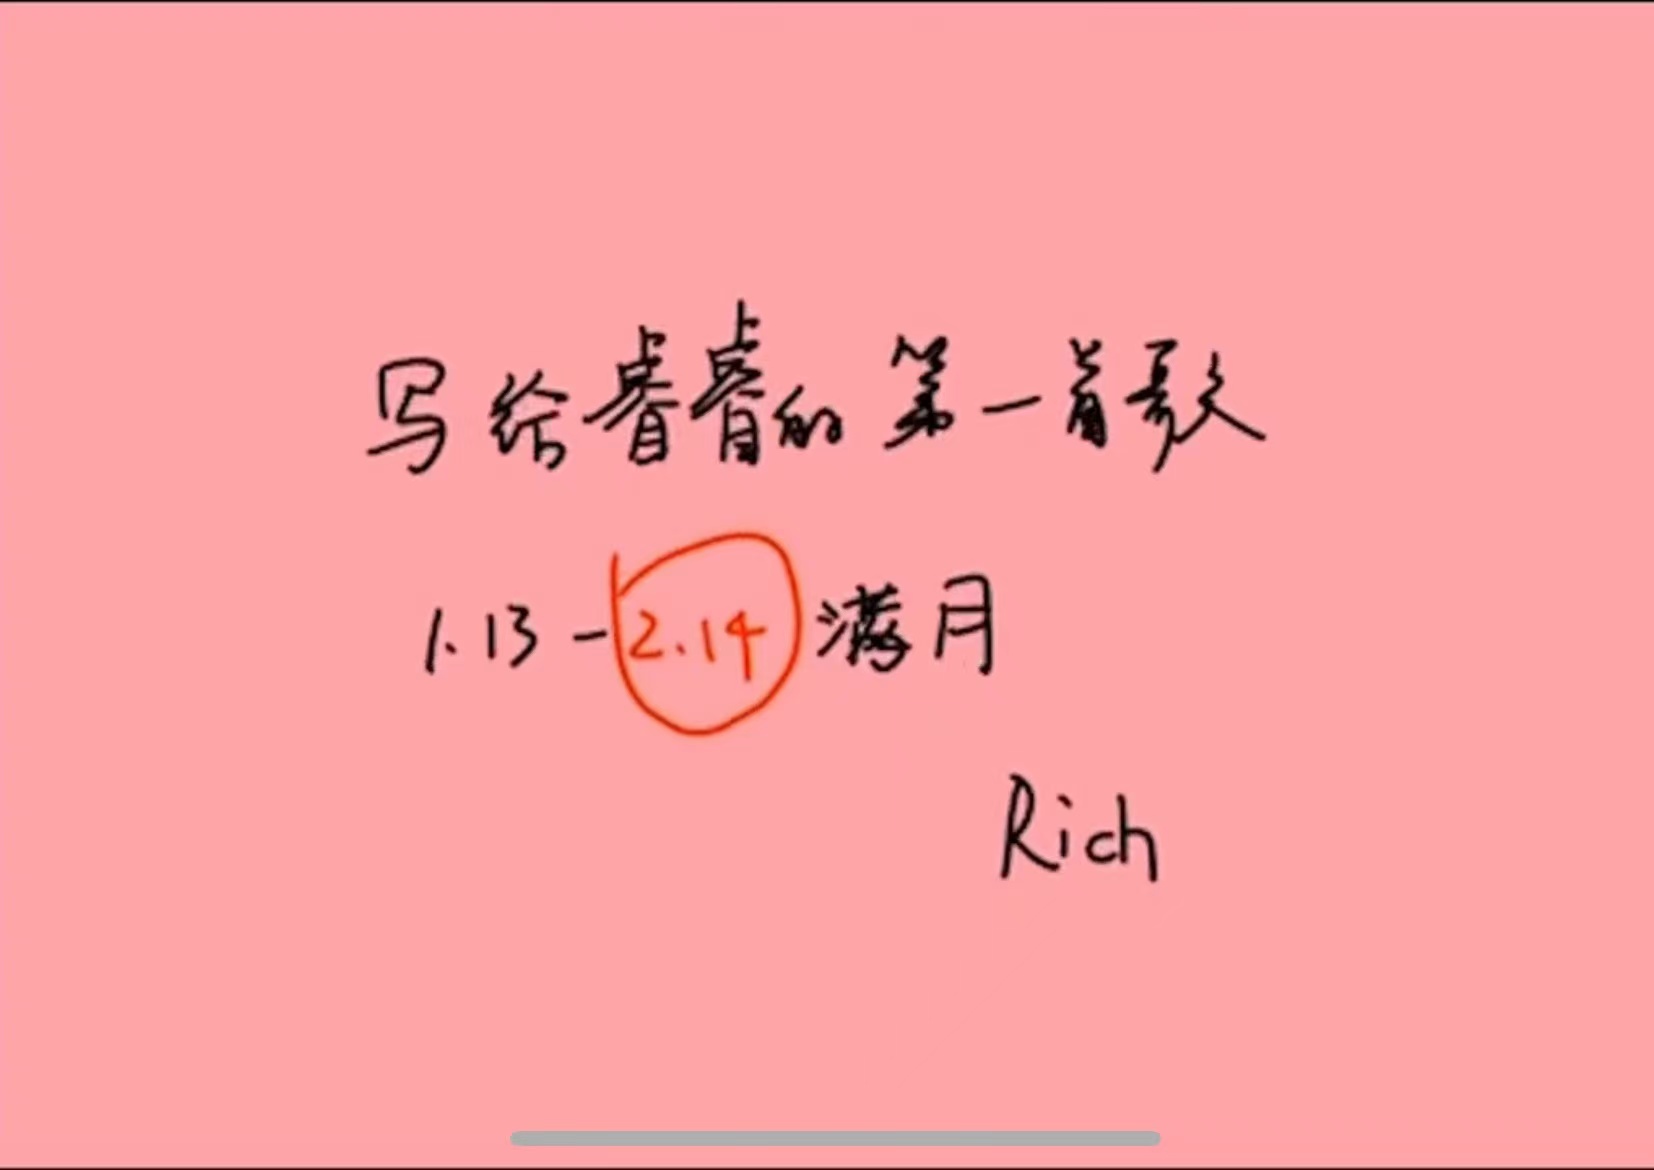 写给睿睿的第一首歌
1.13-2.14满月
Rich